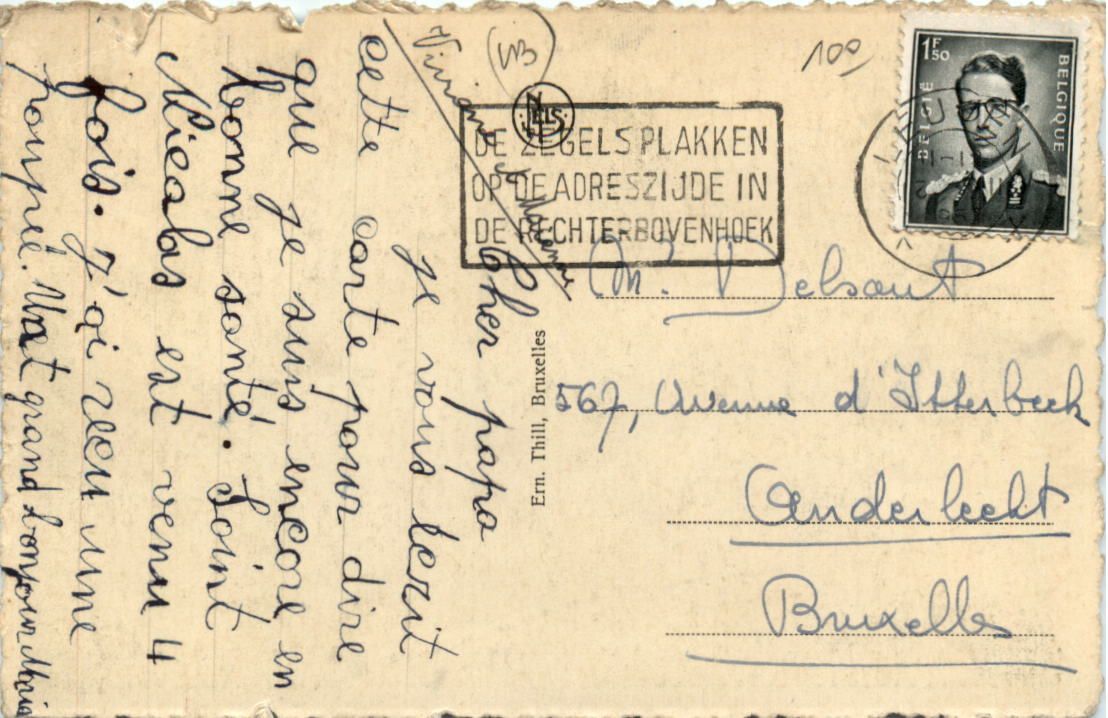 Cher papa
je vous ecrit
cette carte pour dire
que je suis encore en
bonne santé. Saint
Nicolas est venu 4
fois. J'ai recu une
poupée. Un grand bonjour
WB
NELS
100
1F50
BELGIQUE
BELGIË
DE ZEGELS PLAKKEN
OP DE ADRESZIJDE IN
DE RECHTERBOVENHOEK
Ern. Thill, Bruxelles
M. Delsaut
567, Avenue d'Itterbeek
Anderlecht
Bruxelles